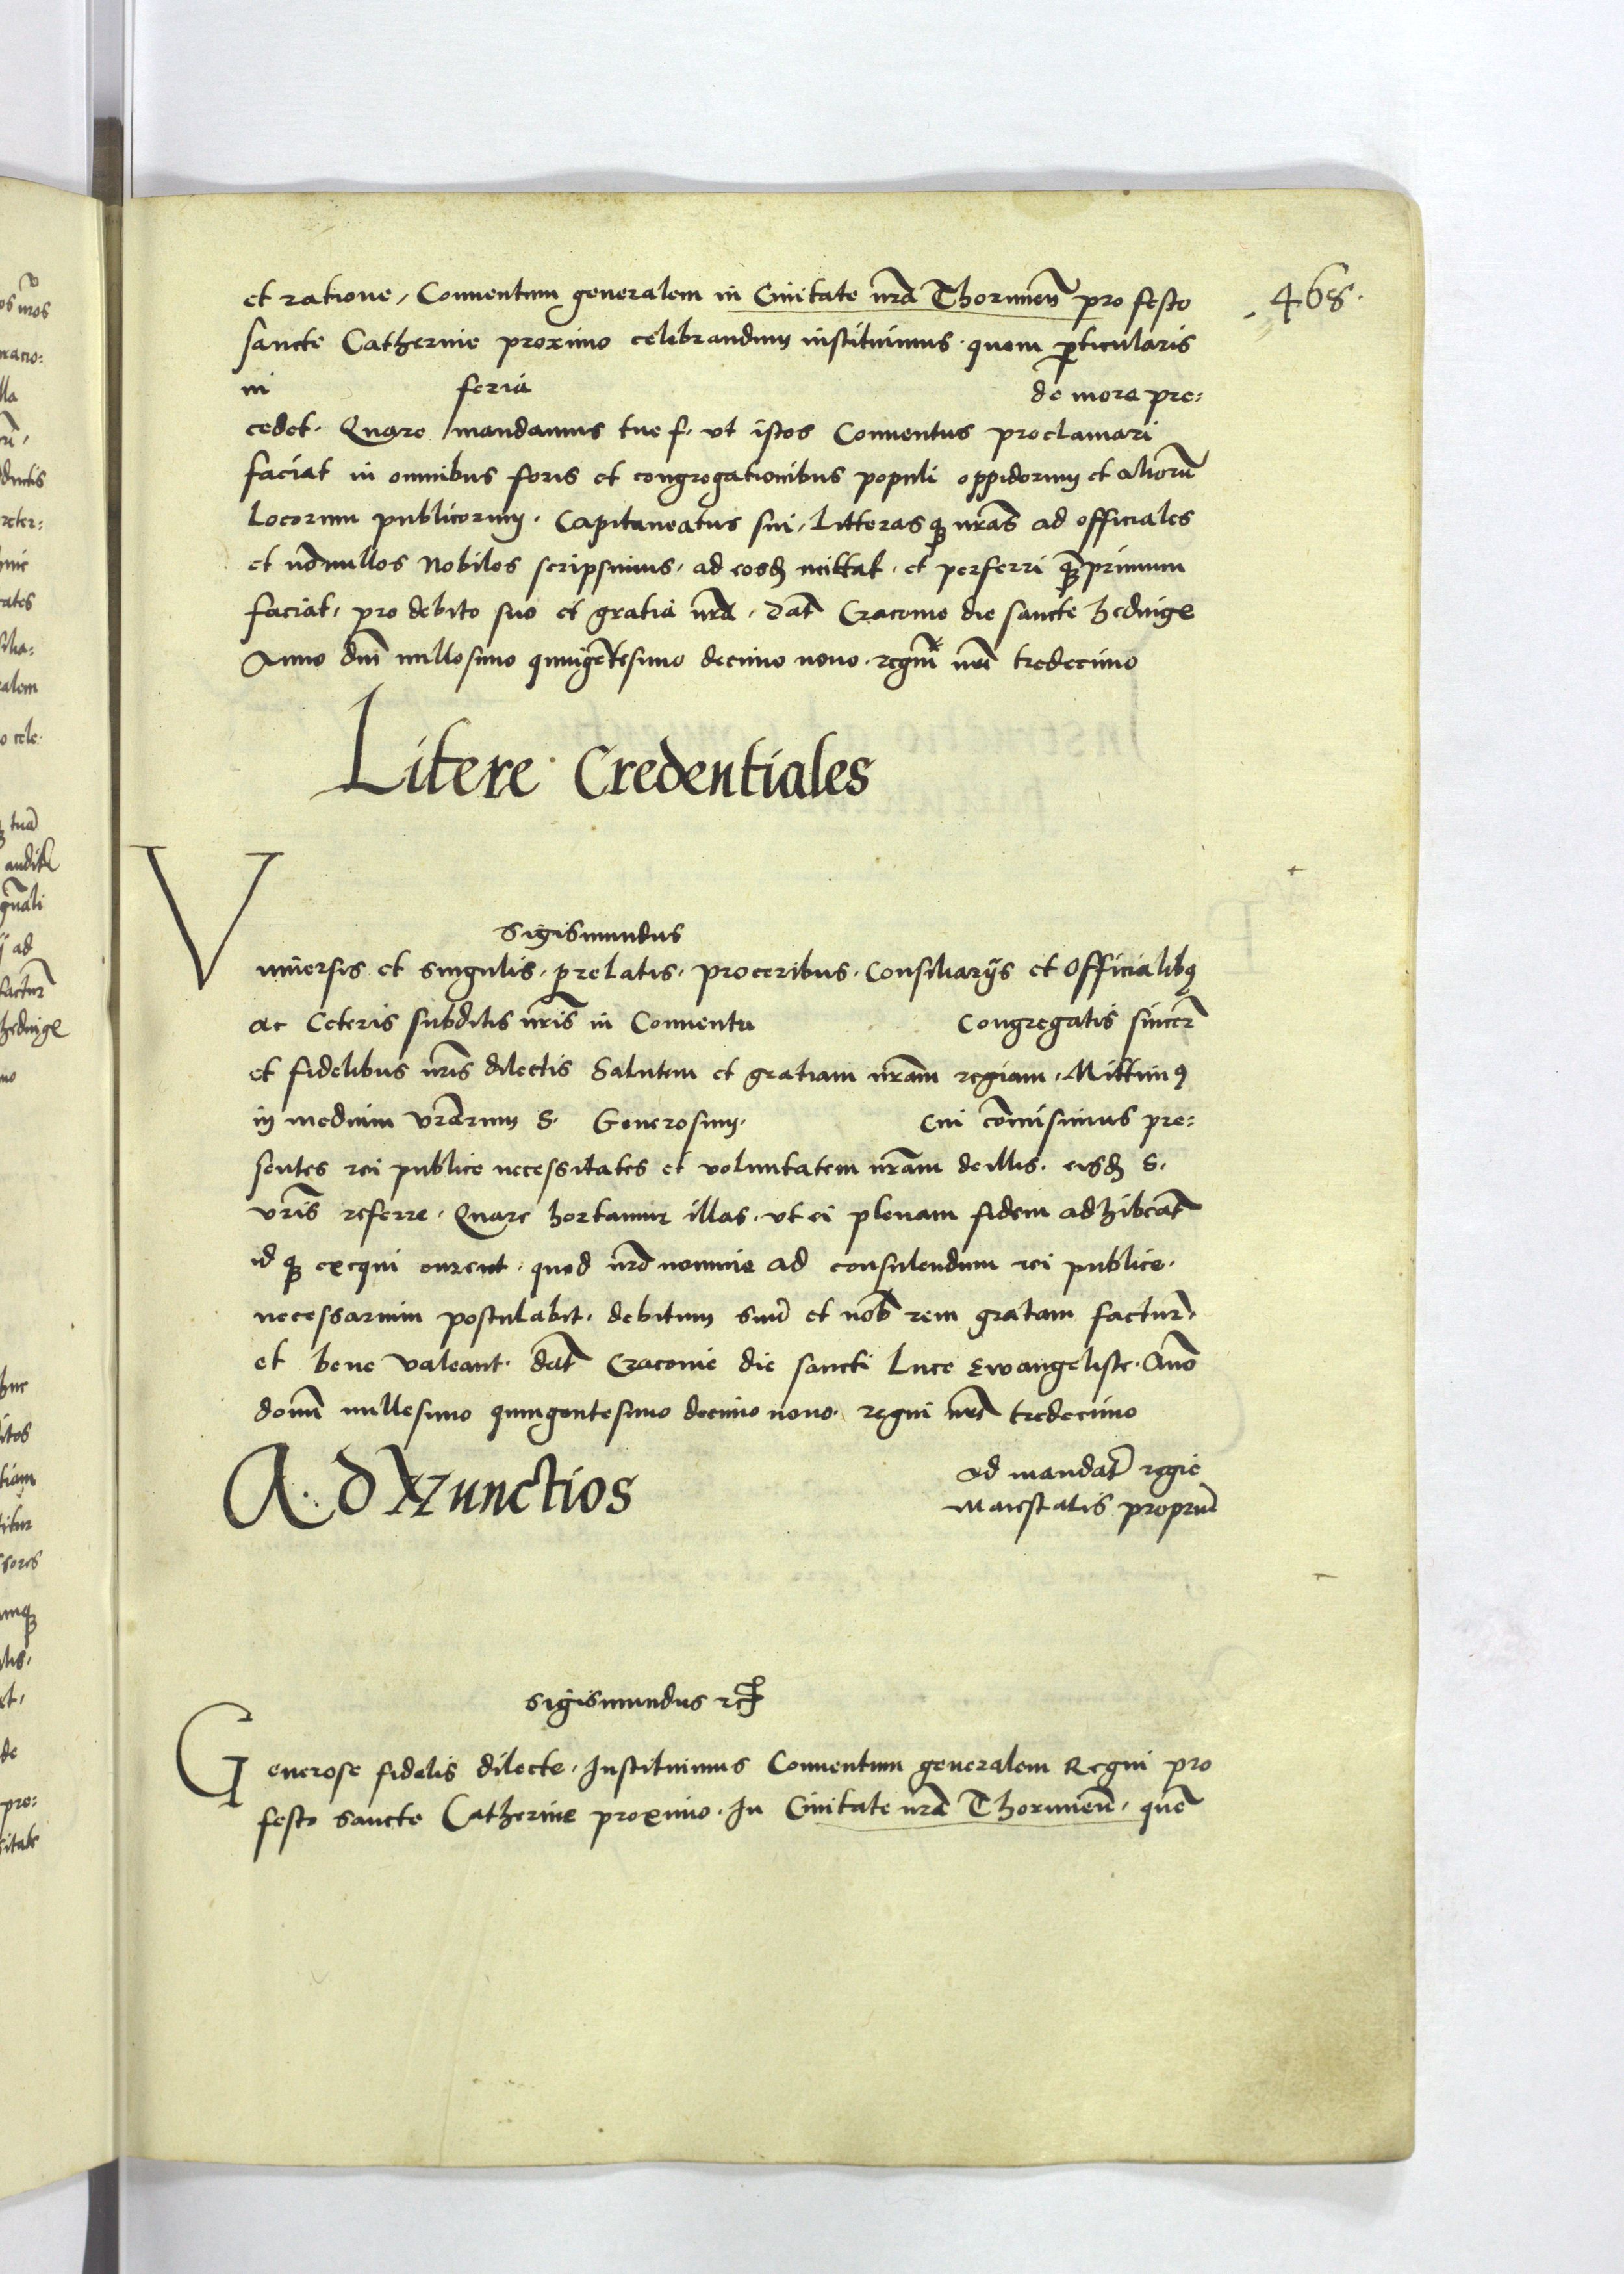 . 468 .
et ratione, Conuentum generalem in Ciuitate nr̄a Thorunen̄ pro festo
sancte Catherine proximo celebrandum instituimus . quem ꝑticularis
in feria de more pre:
cedet . Quare mandamus tue f. vt istos Conuentus proclamari
faciat in omnibus foris et congregationibus populi oppidorum et aliorū
Locorum publicorum . Capitaneatus sui, Litterasqꝫ nr̄as ad officiales
et nōnullos Nobiles scripsimus, ad eosdꝫ mittat, et perferri qꝫ̄primum
faciat, pro debito suo et gratia nr̄a . Dat̄ Cracouie die sancte hedwige
Anno dnī millesimo quingētesimo decimo nono . regni nrī tredecimo
Litere Credentiales
Sigismundus
Vniuersis et singulis . prelatis . proceribus . Consiliarijs et Officialibꝰ
ac Ceteris subditis nr̄is in Conuentu Congregatis sincer̄
et fidelibus nr̄is dilectis Salutem et gratiam nr̄am regiam . Mittimꝰ
in medium vr̄arum S. Generosum . Cui com̄isimus pre:
sentes rei publice necessitates et voluntatem nr̄am de illis . eisdꝫ S.
vr̄is referre . Quare hortamur illas . vt ei plenam fidem adhibeāt
idqꝫ exequi curent . quod nr̄o nomine ad consulendum rei publice .
necessarium postulabit . debitum suū et nob̄ rem gratam factur̄ .
et bene valeant . dat̄ Cracouie die sancti Luce Ewangeliste . An̄o
domī millesimo quingentesimo decimo nono . regni nrī tredecimo
Ad mandat̄ regie
Maiestatis propriū
Sigismundus
Generose fidelis dilecte . Instituimus Conuentum generalem Regni pro
festo sancte Catherine proximo . In Ciuitate nr̄a Thorunen̄ . quē